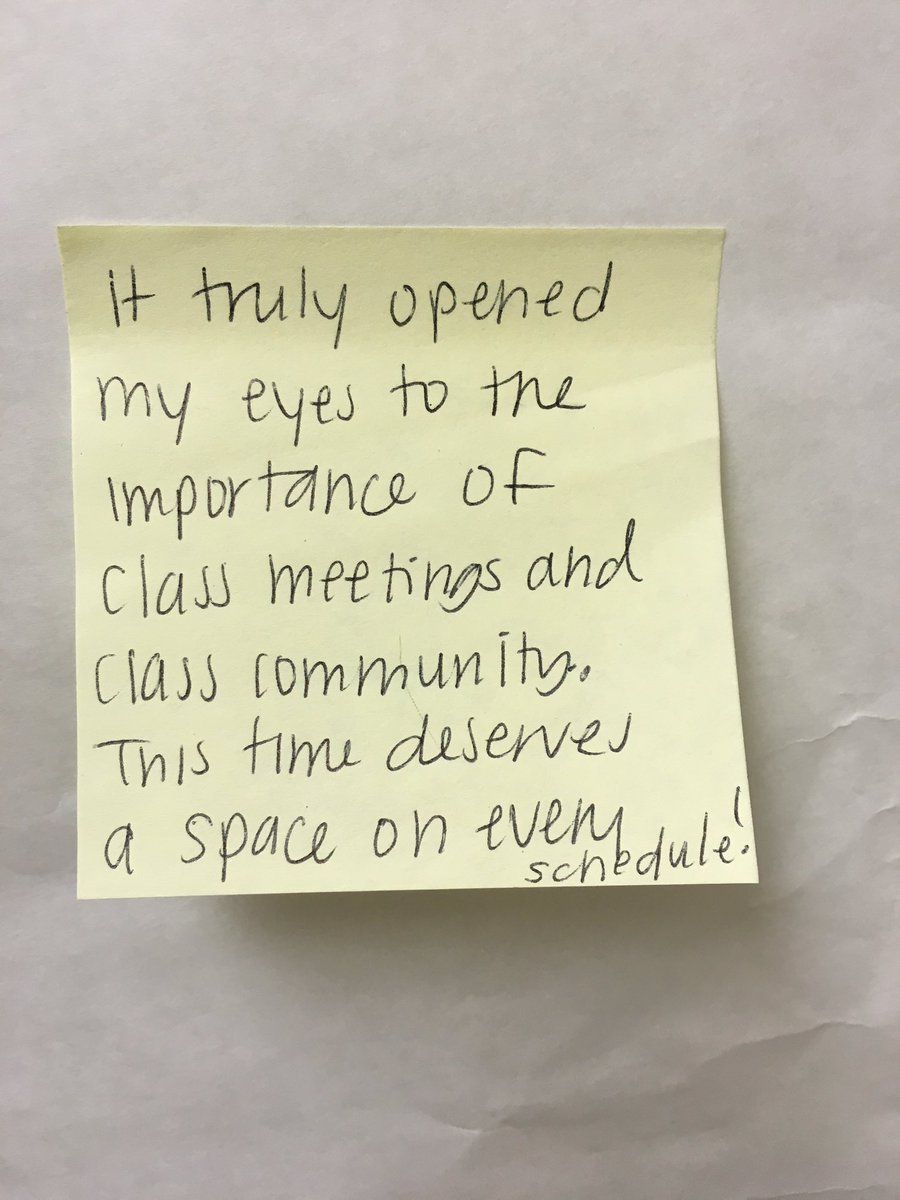 it truly opened
my eyes to the
importance of
class meetings and
class community.
This time deserves
a space on every
schedule!